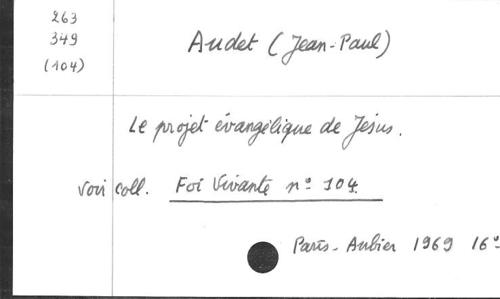 263
349
(104)
Audet (Jean-Paul)
Le projet évangélique de Jésus.
voir coll. Foi Vivante n° 104
Paris - Aubier 1969 16°